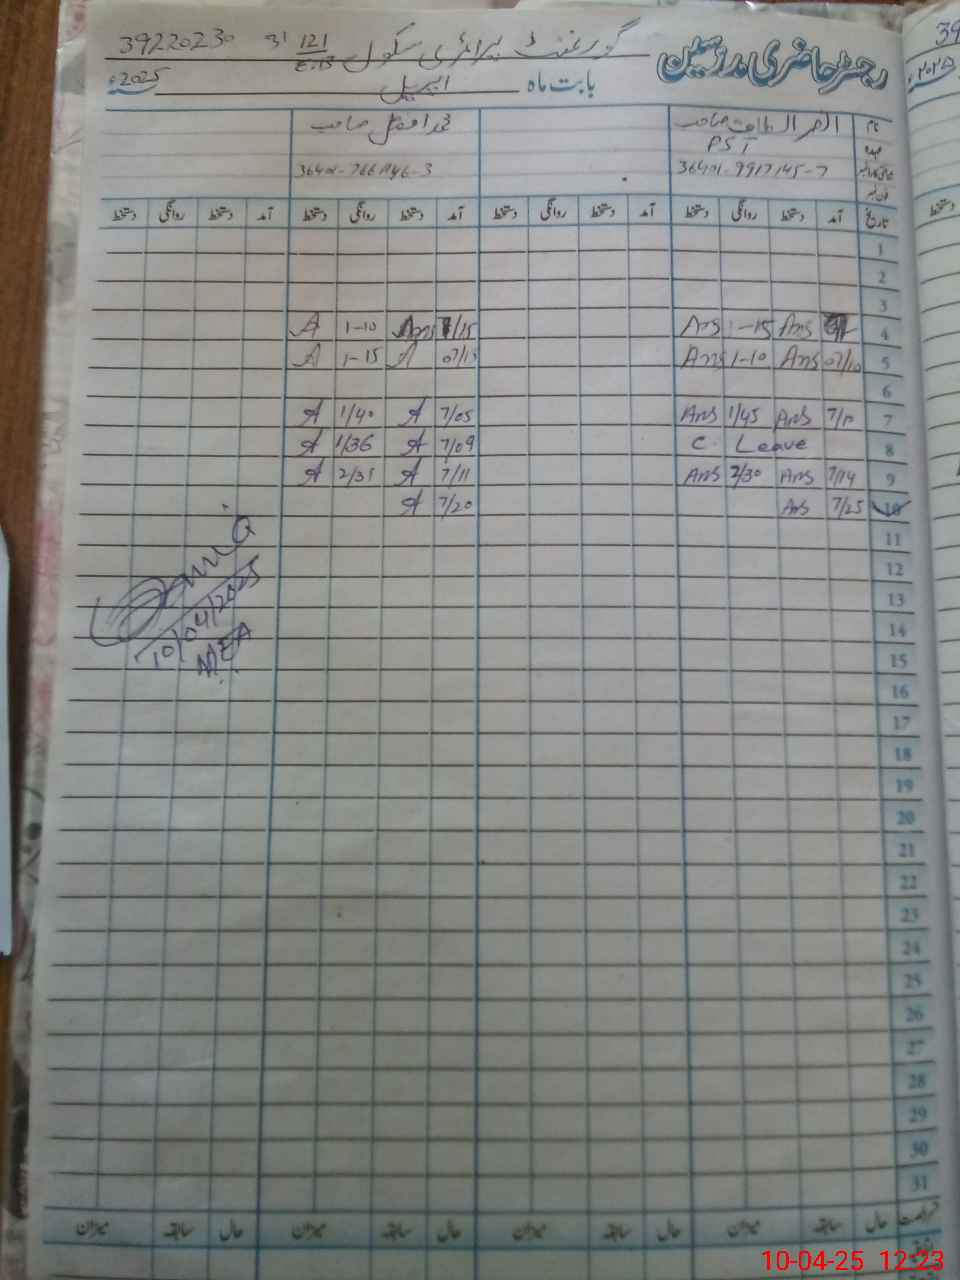 رجسٹر حاضری مدرسین گورنمنٹ پرائمری سکول 121 31 39220230
بابت ماہ اپریل 2025ء
نام صاحب محمد افضل صاحب
PST
36401-9917145-7
تاریخ آمد دستخط روانگی دستخط آمد دستخط روانگی دستخط آمد دستخط روانگی دستخط آمد دستخط روانگی دستخط
1
2
3
4 Ans 1-15 Ans 7/15 Ans 1-10 A
5 07/10 Ans 1-10 Ans 07/15 A 1-15 A
6
7 7/10 Ans 1/45 Ans 7/05 A 1/40 A
8 C. Leave 7/09 A 1/36 A
9 7/14 Ans 2/30 Ans 7/11 A 2/31 A
10 7/25 Ans 7/20 A
11
12
13
14
15
16
17
18
19
20
21
22
23
24
25
26
27
28
29
30
31
10/04/2025
MEA
حال سابقہ میزان حال سابقہ میزان حال سابقہ میزان حال سابقہ میزان
10-04-25 12:23